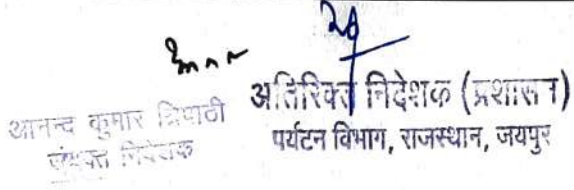 आनन्द कुमार त्रिपाठी
संयुक्त निदेशक
अतिरिक्त निदेशक (प्रशासन)
पर्यटन विभाग, राजस्थान, जयपुर